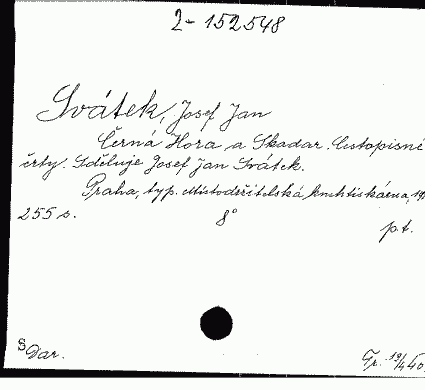 2-152548
Svátek, Josef Jan
Černá Hora a Skadar. Cestopisné
črty. Sděluje Josef Jan Svátek.
Praha, typ. Místodržitelská knihtiskárna, 19
255 s. 8°
p.t.
S Dar. Tr. 19/4 40.